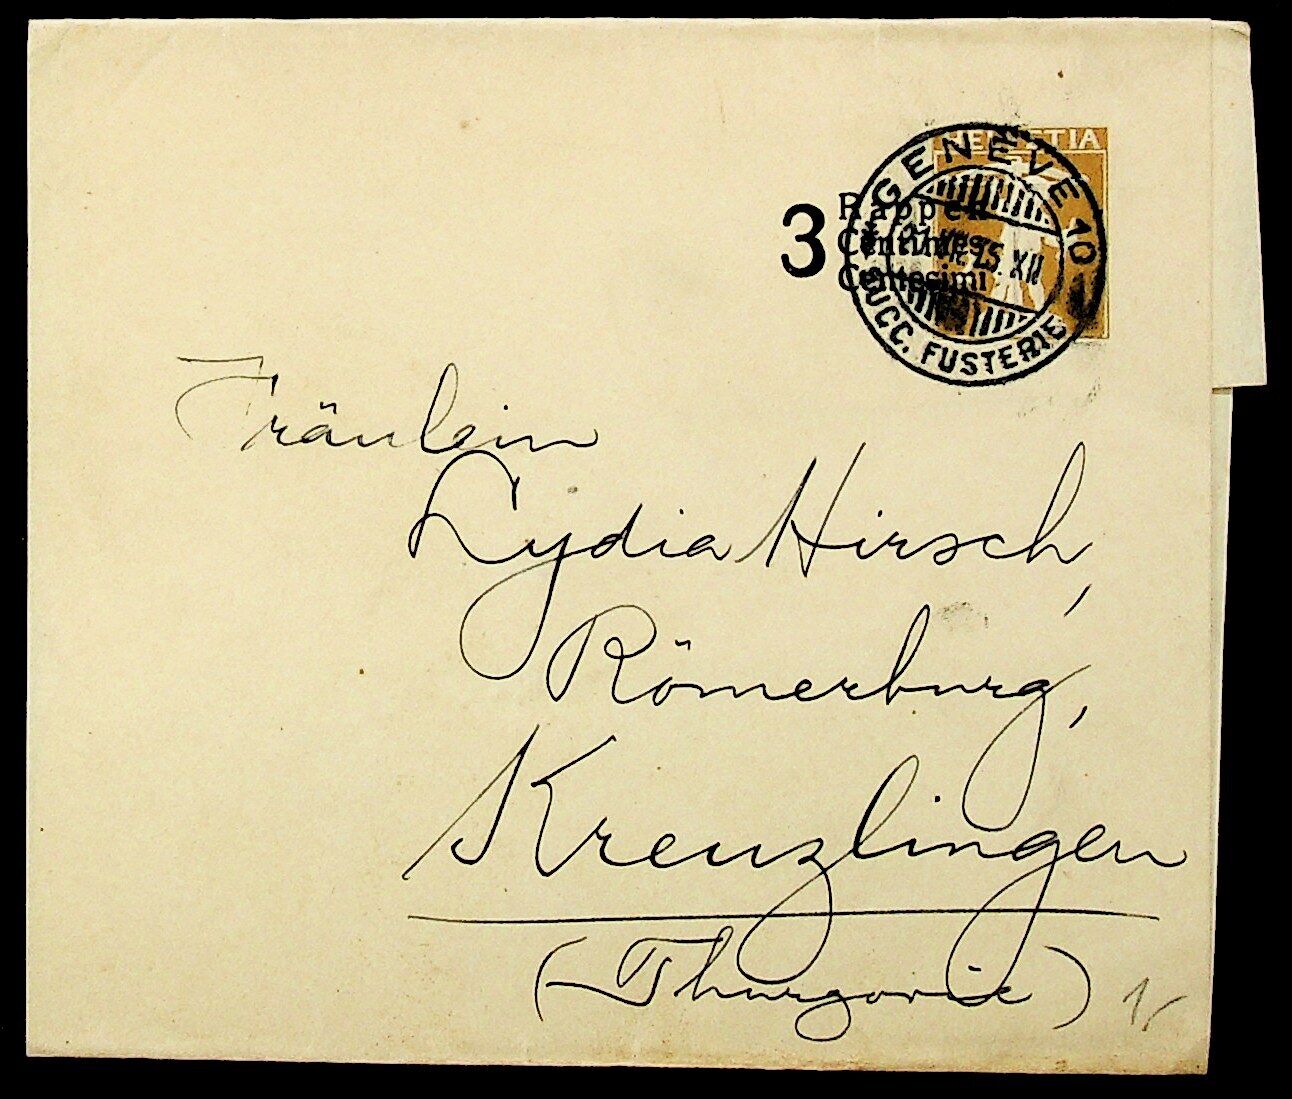 HELVETIA
GENÈVE 10
SUCC. FUSTERIE
3 Rappen
Centimes
Centesimi
Fräulein
Lydia Hirsch,
Römerburg,
Kreuzlingen
(Thurgovie)